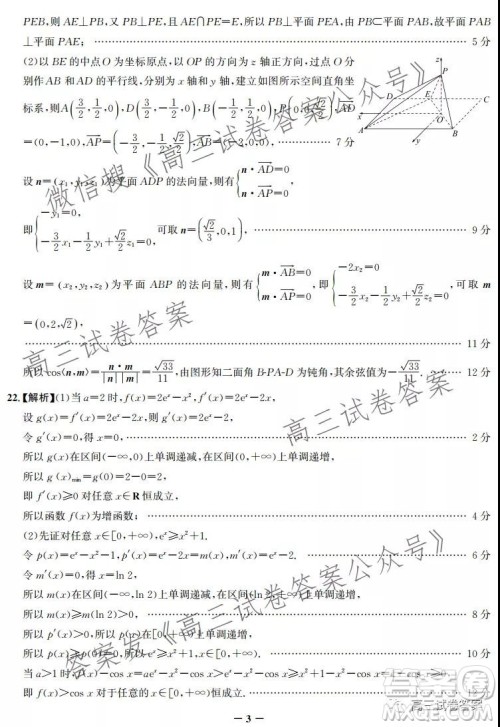 PEB,则 AE⊥PB,又 PB⊥PE,且 AE∩PE=E,所以 PB⊥平面 PEA,由 PB⊂平面 PAB,故平面 PAB
⊥平面 PAE; 5 分
(2)以 BE 的中点 O 为坐标原点,以 OP 的方向为 z 轴正方向,过点 O 分
别作 AB 和 AD 的平行线,分别为 x 轴和 y 轴,建立如图所示空间直角坐
标系,则 A(3/2,1/2,0),D(3/2,-1/2,0),B(-1/2,1/2,0),P(0,0,√2/2),AD
=(0,-1,0),AP=(-3/2,-1/2,√2/2),AB=(-2,0,0), 7 分
设 n=(x₁,y₁,z₁)为平面 ADP 的法向量,则有{n·AD=0 n·AP=0
即{-y₁=0 -3/2x₁-1/2y₁+√2/2z₁=0,可取 n=(√2/3,0,1), 9 分
设 m=(x₂,y₂,z₂)为平面 ABP 的法向量,则有{m·AB=0 m·AP=0,即{-2x₂=0 -3/2x₂-1/2y₂+√2/2z₂=0,可取 m
=(0,2,√2),
所以 cos⟨n,m⟩=n·m/|n||m|=√33/11,由图形知二面角 B-PA-D 为钝角,其余弦值为-√33/11. 12 分
22.【解析】(1)当 a=2 时,f(x)=2eˣ-x²,f′(x)=2eˣ-2x,
设 g(x)=f′(x)=2eˣ-2x,则 g′(x)=2eˣ-2,
令 g′(x)=0,得 x=0. 2 分
所以 g(x)在区间(-∞,0)上单调递减,在区间(0,+∞)上单调递增,
所以 g(x)min=g(0)=2-0=2,
即 f′(x)≥0 对任意 x∈R 恒成立,
所以函数 f(x)为增函数; 4 分
(2)先证对任意 x∈[0,+∞),eˣ≥x²+1.
令 p(x)=eˣ-x²-1,p′(x)=eˣ-2x=m(x),m′(x)=eˣ-2,
令 m′(x)=0,得 x=ln 2,
所以 m(x)在区间(-∞,ln 2)上单调递减,在区间(ln 2,+∞)上单调递增,
所以 m(x)≥m(ln 2)>0, 8 分
所以 p′(x)>0,所以 p(x)在[0,+∞)上单调递增,
所以 p(x)≥p(0)=0,所以 eˣ≥x²+1. 10 分
当 a>1 时,f(x)-cos x=aeˣ-x²-cos x>eˣ-x²-cos x≥x²+1-x²-cos x=1-cos x≥0,
即 f(x)>cos x 对于任意的 x∈[0,+∞)恒成立. 12 分
— 3 —
微信搜《高三试卷答案公众号》
高三试卷答案
高三试卷答案
答案发《高三试卷答案公众号》
高三试卷答案